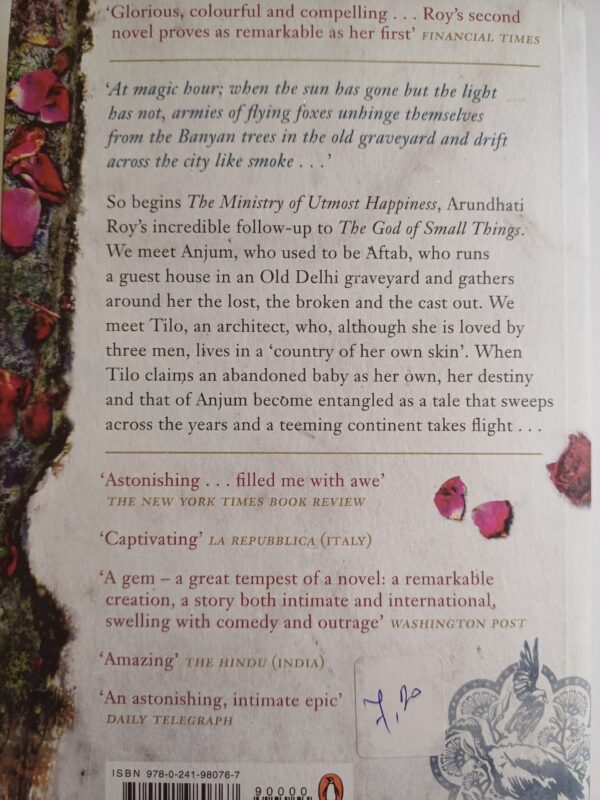 ‘Glorious, colourful and compelling . . . Roy’s second
novel proves as remarkable as her first’ FINANCIAL TIMES
‘At magic hour; when the sun has gone but the light
has not, armies of flying foxes unhinge themselves
from the Banyan trees in the old graveyard and drift
across the city like smoke . . .’
So begins The Ministry of Utmost Happiness, Arundhati
Roy’s incredible follow-up to The God of Small Things.
We meet Anjum, who used to be Aftab, who runs
a guest house in an Old Delhi graveyard and gathers
around her the lost, the broken and the cast out. We
meet Tilo, an architect, who, although she is loved by
three men, lives in a ‘country of her own skin’. When
Tilo claims an abandoned baby as her own, her destiny
and that of Anjum become entangled as a tale that sweeps
across the years and a teeming continent takes flight . . .
‘Astonishing . . . filled me with awe’
THE NEW YORK TIMES BOOK REVIEW
‘Captivating’ LA REPUBBLICA (ITALY)
‘A gem – a great tempest of a novel: a remarkable
creation, a story both intimate and international,
swelling with comedy and outrage’ WASHINGTON POST
‘Amazing’ THE HINDU (INDIA)
‘An astonishing, intimate epic’
DAILY TELEGRAPH
7,20
ISBN 978-0-241-98076-7
90000